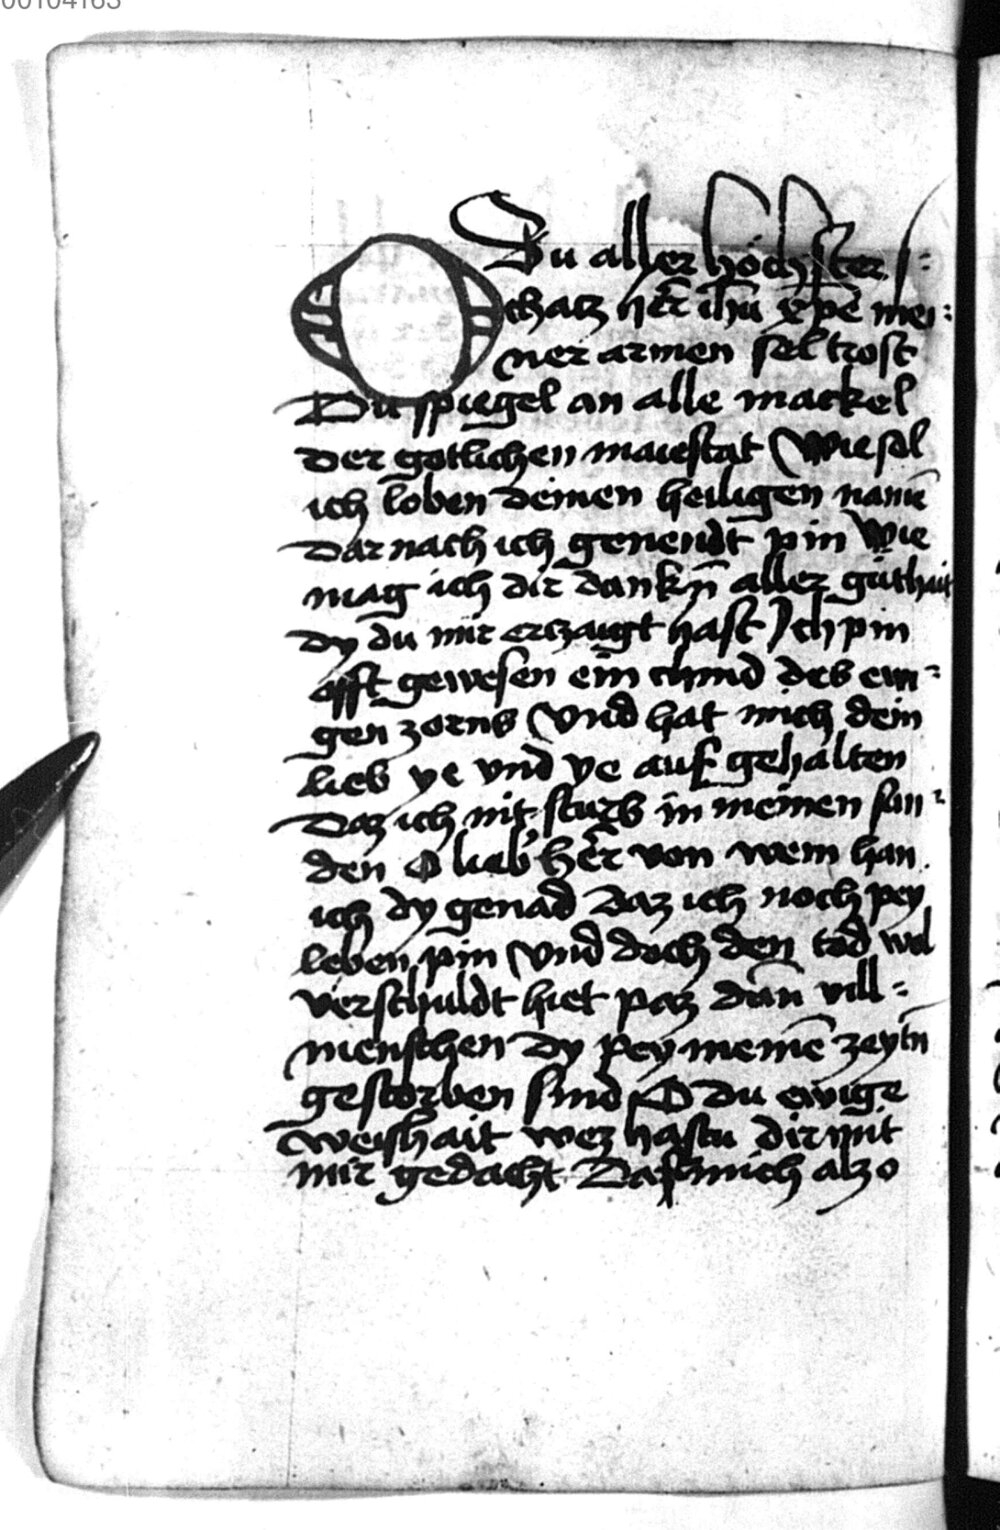 00104163
O Du aller höchster s=
chatz her̄ ih̄u xp̄e mei=
ner armen sel trost
Du spiegel an alle mackel
der gotlichen maiestat Wie sol
ich loben deinen heiligen namē
dar nach ich genendt pin Wie
mag ich dir dankn̄ aller guthait
dy du mir erczaigt hast Ich pin
offt gewesen ein chind des ewi=
gen zorns Vnd hat mich dein
lieb ye vnd ye auf gehalten
Daz ich nit sturb in meinen sun=
den O lieb' her̄ von wem han
ich dy genad Daz ich noch pey
leben pin Vnd doch den tod wol
verschuldt hiet paz dan̄ vill=
menschen dy pey meinē zeytn̄
gestorben sind O du ewige
weishait wez hastu dir mit
mir gedacht Dastu mich alzo